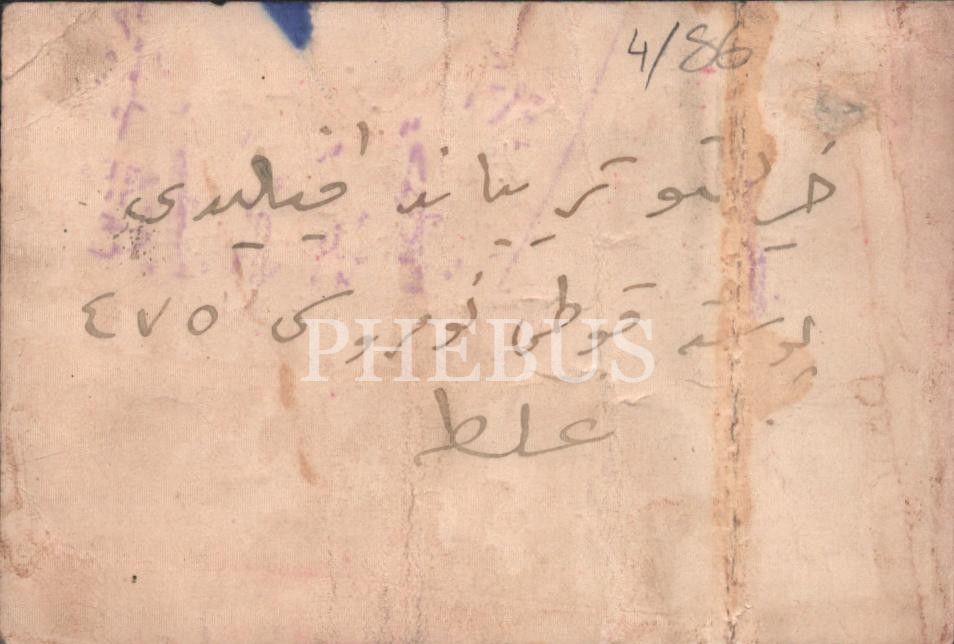 4/86
خريستو تريياند افيليدي
پوسته قوطی نومروسی ٤٧٥
غلطه
PHEBUS